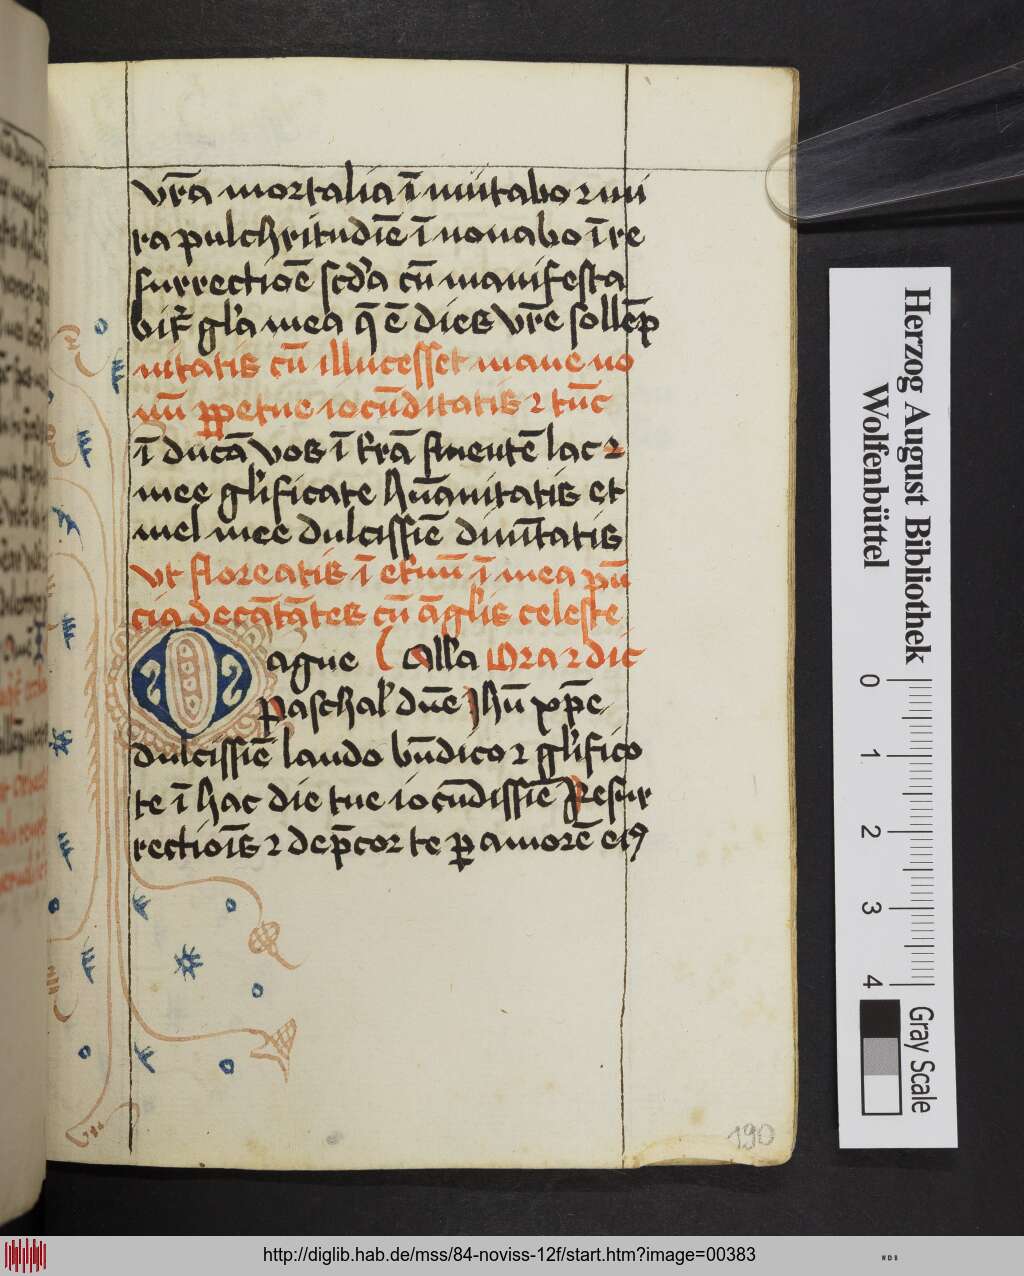 vr̄a mortalia ī mūtabo ꝛ mi
ra pulchritudīe ī nouabo ī re
surrectiōe scd'a cū manifesta
bit᷑ gl'a mea q̄ ē dies vr̄e sollēp
nitatis cū illucesset mane no
uū ꝑpetue iocūditatis ꝛ tūc
ī ducā vos ī t'rā fluentē lac ꝛ
mee gl'ificate hūanitatis et
mel mee dulcissīe diuīitatis
vt floreatis ī et'nū ī mea p̄n
cia decātātes cū āgl'is celeste
ague all'a Ora ꝛ dic
O Paschal' dūe Jhū xp̄e
dulcissīe laudo bn̄dico ꝛ gl'ifico
te ī hac die tue iocūdissīe Resur
rectiōis ꝛ dep̄cor te ꝑ amorē eiꝰ
190
Herzog August Bibliothek
Wolfenbüttel
0 1 2 3 4
Gray Scale
http://diglib.hab.de/mss/84-noviss-12f/start.htm?image=00383